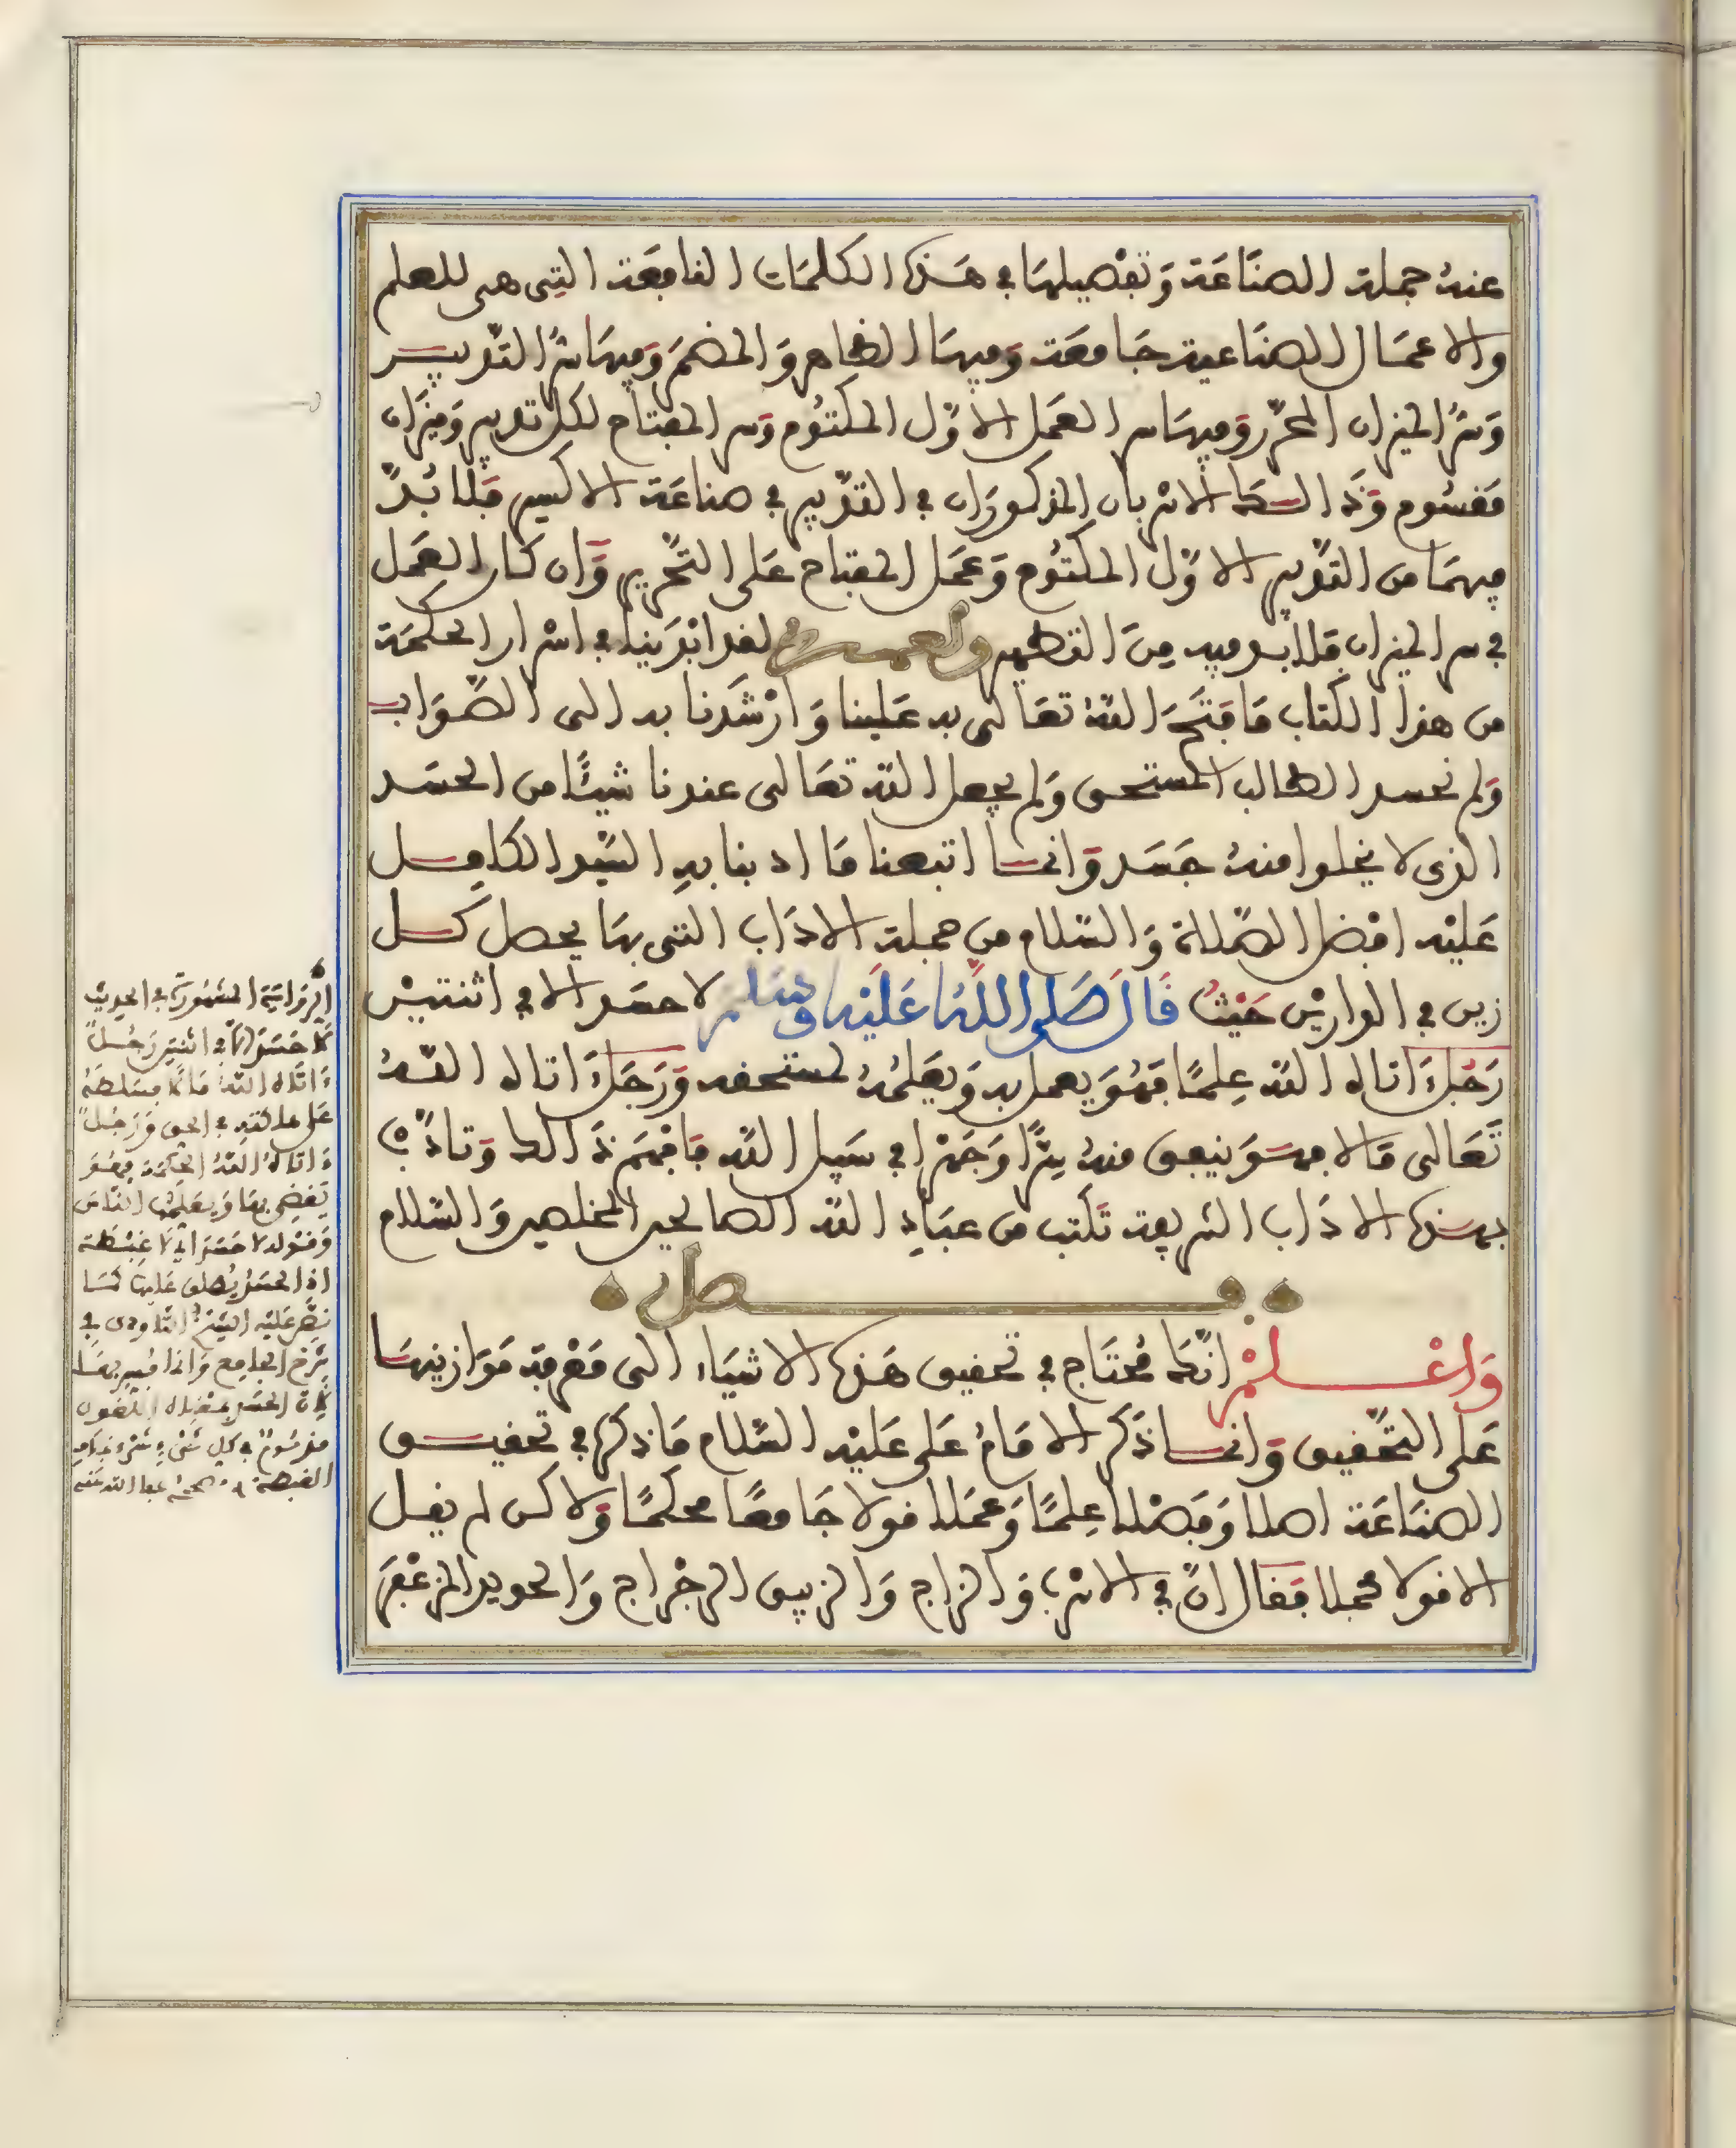 عنهُ جملة الصنَاعَة وَتفْصيلهَا في هَذه الكلمَات النافعَة التِى هى للعلم
والاعمَال الصنَاعية جَامعَة وَفيهَا الظاهر وَالمضمَر وَفيهَا سرّ التدبيـر
وَسرّ الميزان المحرّر وَفيهَا سر العمَل الاوّل المكتوُم وَسر المفتاح لكل تدبير وَميزَان
مَفسُوم وَذَالـك الاسْربان المذكورَان في التدْبير في صناعَة الاكسير فَلا بُدّ
فيهمَا من التدْبير الاوّل المكتوُم وَعمَل المفتاح عَلى التحْرير وَان كان العَمل
في سر الميزان فلا بـد فيه مِنَ التطهير ولعمـرى لقد ابْدَينا في اسْرار الحكمَة
من هذا الكتاب مَا فتَحَ اللهُ تعَالى به عَلينا وَارْشدَنا به الى الصّوَاب
وَلم نحسد الطالب المستحق وَلم يجعل الله تعَالى عندنا شيئًا من الحسَد
الذى لا يخلوا منهُ جَسَد وَانمـا اتبعنا مَا ادبنا بهِ السَيّد الكامِـل
عَليْه افضل الصّلاة وَالسّلام من جملة الادَاب التى بهَا يحصل كـل
زين في الدارين حَيْثُ قَالَ صَلى اللهُ عَلَيْه وَسَلم لا حسَد الا في اثنتيْن
رَجُلٌ اتاه الله عِلمًا فَهُوَ يعمل به وَيعَلمُهُ لمستحقه وَرَجَلٌ اتاه اللهُ
تَعَالى مَالا فهـوَ ينفق منهُ سِرًّا وَجَهْرا في سَبيل الله فافهَم ذَالك وَتادّب
بهـذه الادَاب الشريعة تكتب من عبَادِ الله الصالحين المخلصين وَالسّلام
فـصل
وَاعْـلـمْ انّكَ مُحتَاج في تحقيق هَذه الاشيَاء الى مَعْرفة مَوَازينهَـا
عَلى التحَقيق وَانمـا ذكَر الامَامُ عَلى عَليْه السّلام مَا ذكرهُ في تحقيـق
الصنَاعَة اصلا وَفَصْلا عِلمًا وَعمَلا قولا جَامعًا محكمًا وَلاكن لم يقـل
الا قولا مجملا فَقال انّ في الاسْرب وَالزاج وَالزيبق الرجْراج وَالحديد المزعْفَر
الرّوَايَة المشهُورَة في الحديث
لَا حَسَدَ إلّا في اثنتين رَجُـلٌ
ءَاتَاه اللهُ مَالًا فسَلطَهُ
عَلى هلكتهِ في الحق وَرَجُلٌ
ءَاتاهُ اللهُ الحِكمَة فهُـوَ
يَقضِى بهَا وَيعَلمُهَا الناسَ
وَقوْله لا حَسَدَ أي لَا غِبْطَة
اذ الحسَدُ يُطلق عَليهَا كمَـا
نصَّ عَليْه الشيخ التاودى في
شرْح الجامِع وَاذا فُسِّر بهَـا
لأن الحسَد
مذمُومٌ في كل شىْء
الغبطة عفا الله عَنه